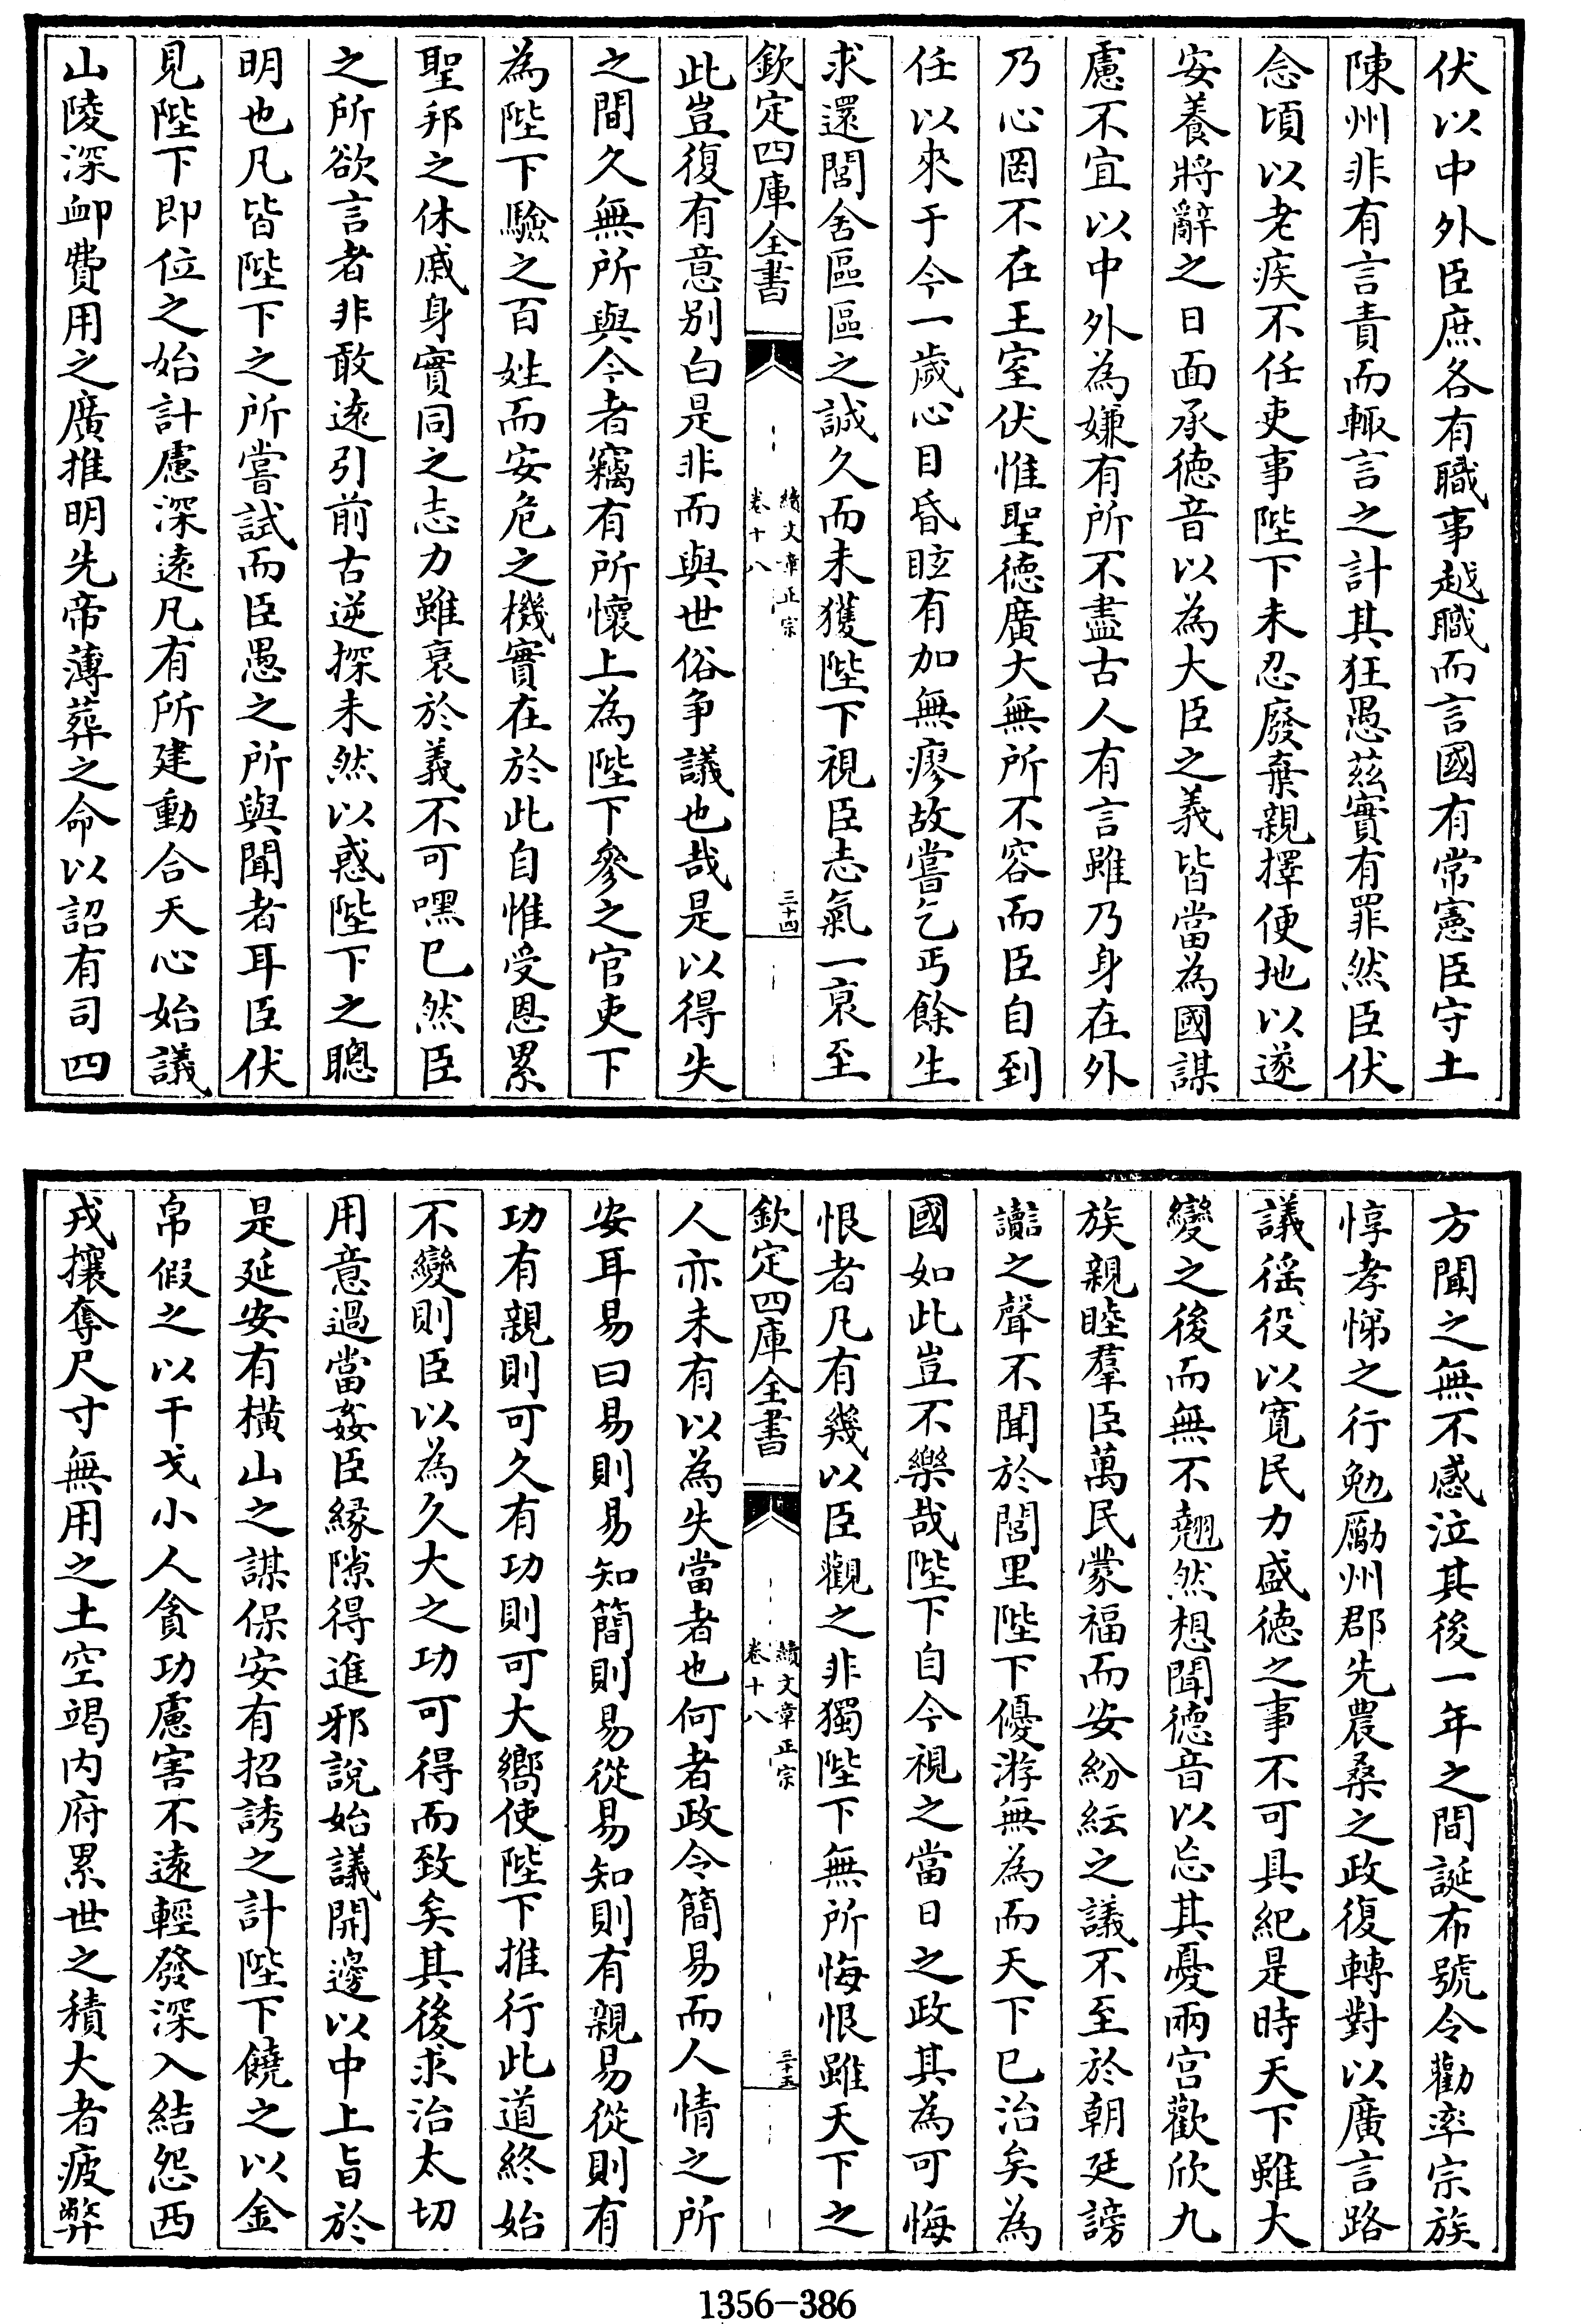 伏以中外臣庶各有職事越職而言國有常憲臣守土
陳州非有言責而輙言之計其狂愚茲實有罪然臣伏
念頃以老疾不任吏事陛下未忍廢棄親擇便地以遂
安養將辭之日面承徳音以為大臣之義皆當為國謀
慮不宜以中外為嫌有所不盡古人有言雖乃身在外
乃心罔不在王室伏惟聖徳廣大無所不容而臣自到
任以來于今一歲心目昏眩有加無瘳故嘗乞丐餘生
求還閭舍區區之誠久而未獲陛下視臣志氣一衰至
欽定四庫全書
續文章正宗
卷十八
三十四
此豈復有意别白是非而與世俗争議也哉是以得失
之間久無所與今者竊有所懷上為陛下參之官吏下
為陛下驗之百姓而安危之機實在於此自惟受恩累
聖邦之休戚身實同之志力雖衰於義不可嘿已然臣
之所欲言者非敢逺引前古逆探未然以惑陛下之聰
明也凡皆陛下之所嘗試而臣愚之所與聞者耳臣伏
見陛下即位之始計慮深逺凡有所建動合天心始議
山陵深䘏費用之廣推明先帝薄葬之命以詔有司四
方聞之無不感泣其後一年之間誕布號令勸率宗族
惇孝悌之行勉勵州郡先農桑之政復轉對以廣言路
議徭役以寛民力盛徳之事不可具紀是時天下雖大
變之後而無不翹然想聞徳音以忘其憂兩宫歡欣九
族親睦羣臣萬民蒙福而安紛紜之議不至於朝廷謗
讟之聲不聞於閭里陛下優游無為而天下已治矣為
國如此豈不樂哉陛下自今視之當日之政其為可悔
恨者凡有幾以臣觀之非獨陛下無所悔恨雖天下之
欽定四庫全書
續文章正宗
卷十八
三十五
人亦未有以為失當者也何者政令簡易而人情之所
安耳易曰易則易知簡則易從易知則有親易從則有
功有親則可久有功則可大嚮使陛下推行此道終始
不變則臣以為久大之功可得而致矣其後求治太切
用意過當姦臣緣隙得進邪說始議開邊以中上㫖於
是延安有横山之謀保安有招誘之計陛下饒之以金
帛假之以干戈小人貪功慮害不逺輕發深入結怨西
戎攘奪尺寸無用之土空竭内府累世之積大者疲弊
1356-386